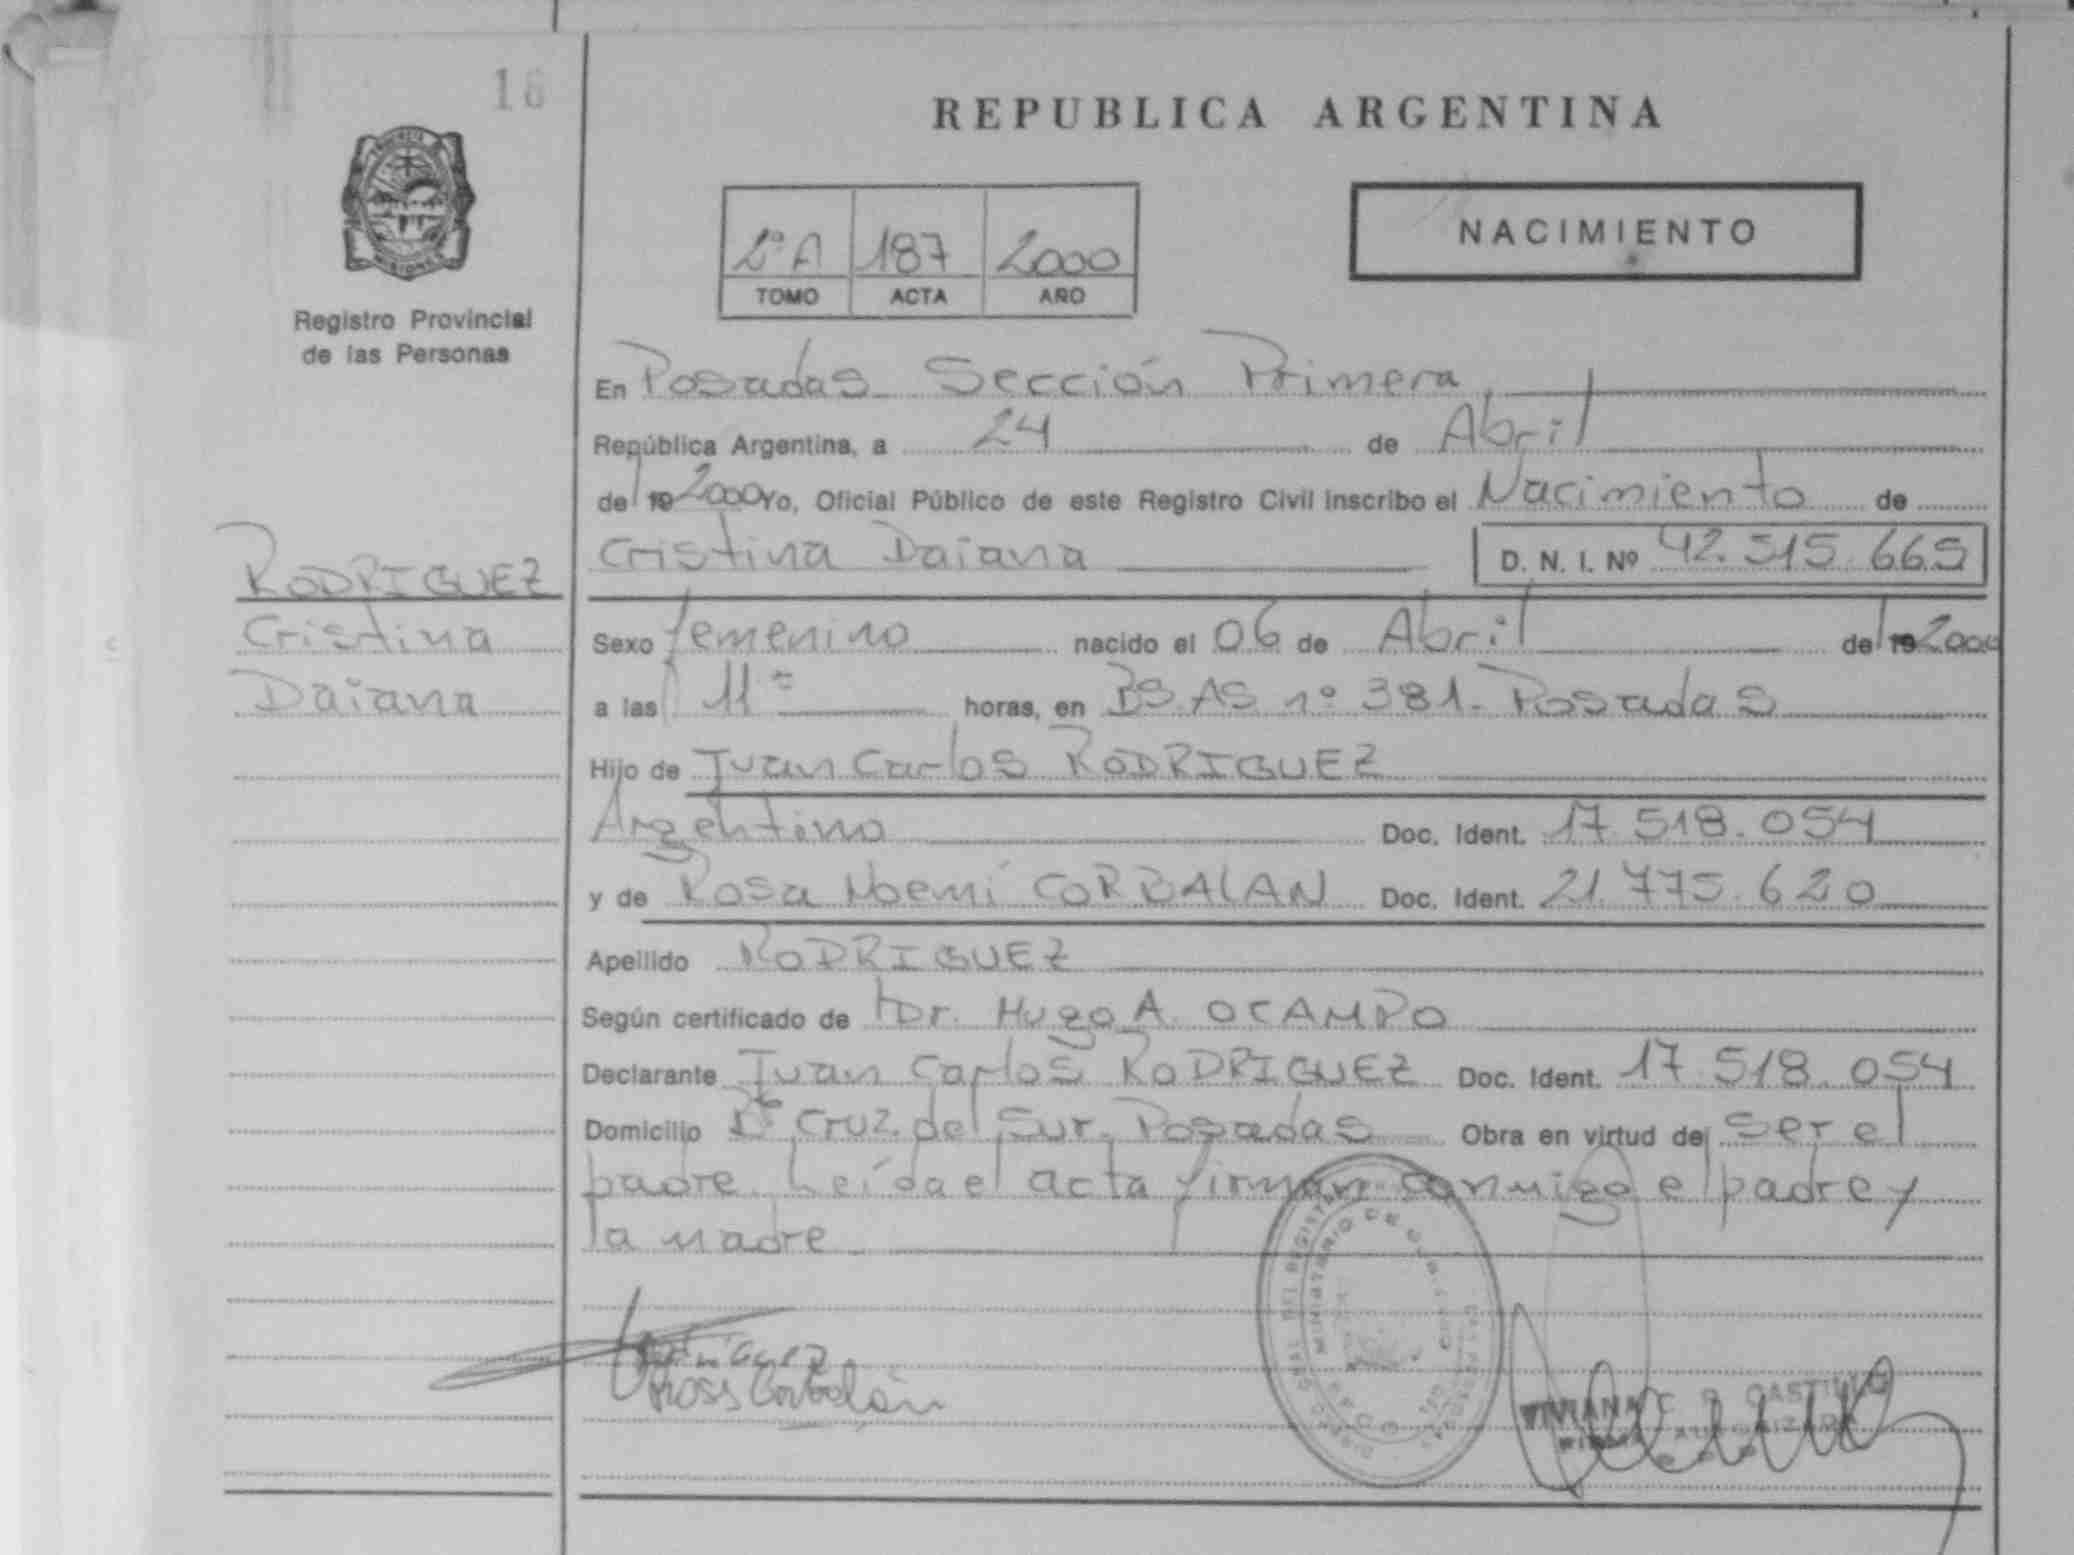 16
REPUBLICA ARGENTINA
PROVINCIA
MISIONES
Registro Provincial
de las Personas
2º A 187 2000
TOMO ACTA AÑO
NACIMIENTO
En Posadas Sección Primera
República Argentina, a 24 de Abril
de 19 2000 Yo, Oficial Público de este Registro Civil inscribo el Nacimiento de
Cristina Daiana D. N. I. Nº 42.515.665
RODRIGUEZ
Cristina
Daiana
Sexo femenino nacido el 06 de Abril de 19 2000
a las 11 horas, en BS.AS nº 381. Posadas
Hijo de Juan Carlos RODRIGUEZ
Argentino Doc. Ident. 17.518.054
y de Rosa Noemí CORBALAN Doc. Ident. 21.775.620
Apellido RODRIGUEZ
Según certificado de Dr. Hugo A. OCAMPO
Declarante Juan Carlos RODRIGUEZ Doc. Ident. 17.518.054
Domicilio Bº Cruz del Sur. Posadas Obra en virtud de ser el
padre. Leída el acta firman conmigo el padre y
la madre
VIVIANA C. CASTILLO